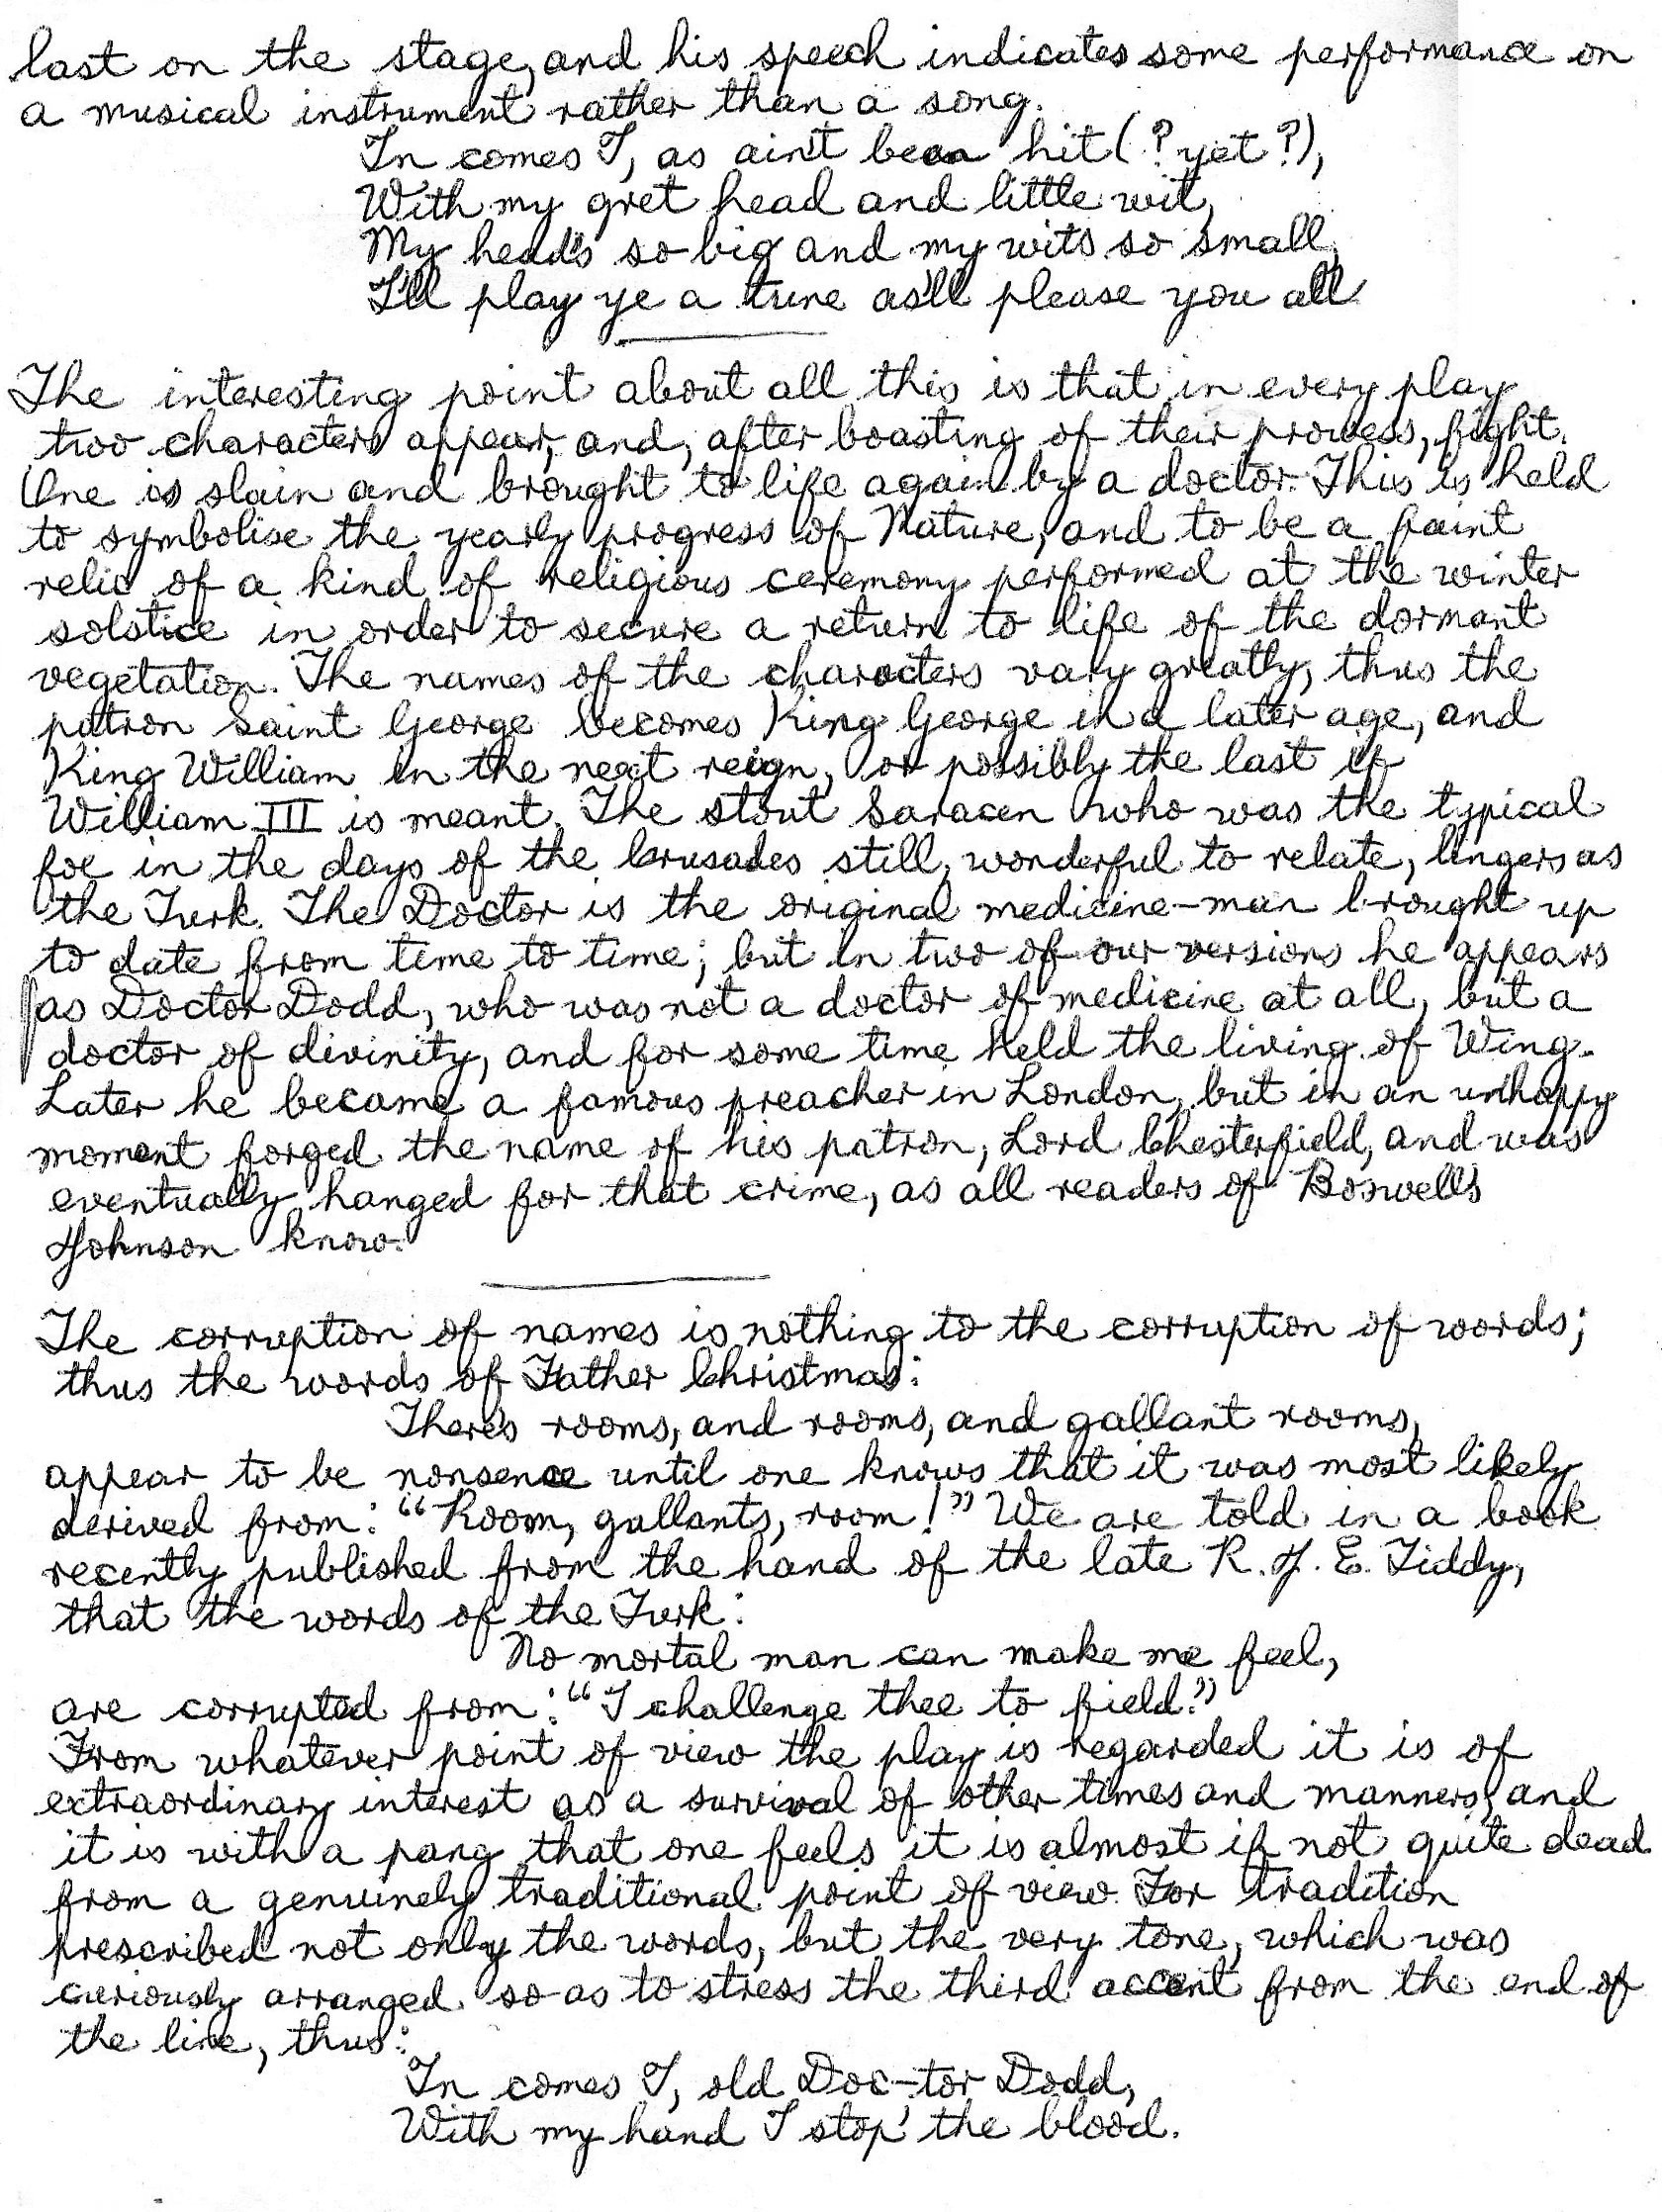 last on the stage, and his speech indicates some performance on
a musical instrument rather than a song.
In comes I, as ain't been hit (? yet ?),
With my gret head and little wit,
My head's so big and my wits so small,
I'll play ye a tune as'll please you all.
The interesting point about all this is that in every play
two characters appear, and, after boasting of their prowess, fight.
One is slain and brought to life again by a doctor. This is held
to symbolise the yearly progress of Nature, and to be a faint
relic of a kind of religious ceremony performed at the winter
solstice in order to secure a return to life of the dormant
vegetation. The names of the characters vary greatly, thus the
patron Saint George becomes King George in a later age, and
King William in the next reign, or possibly the last if
William III is meant. The stout Saracen who was the typical
foe in the days of the Crusades still, wonderful to relate, lingers as
the Turk. The Doctor is the original medicine-man brought up
to date from time to time; but in two of our versions he appears
as Doctor Dodd, who was not a doctor of medicine at all, but a
doctor of divinity, and for some time held the living of Wing.
Later he became a famous preacher in London, but in an unhappy
moment forged the name of his patron, Lord Chesterfield, and was
eventually hanged for that crime, as all readers of Boswell's
Johnson know.
The corruption of names is nothing to the corruption of words;
thus the words of Father Christmas:
There's rooms, and rooms, and gallant rooms,
appear to be nonsence until one knows that it was most likely
derived from: "Room, gallants, room!" We are told in a book
recently published from the hand of the late R. J. E. Tiddy,
that the words of the Turk:
No mortal man can make me feel,
are corrupted from: "I challenge thee to field."
From whatever point of view the play is regarded it is of
extraordinary interest as a survival of other times and manners, and
it is with a pang that one feels it is almost if not quite dead
from a genuinely traditional point of view. For tradition
prescribed not only the words, but the very tone, which was
curiously arranged so as to stress the third accent from the end of
the line, thus:
In comes I, old Doc-tor Dodd,
With my hand I stop' the blood.